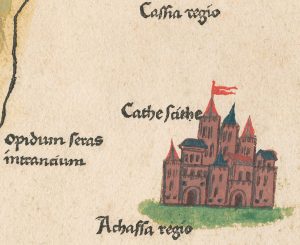 Cassia regio
Cathe scithe
opidum seras
intrancium
Achassa regio